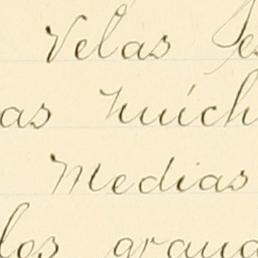 Velas
as much
Medias
los grand